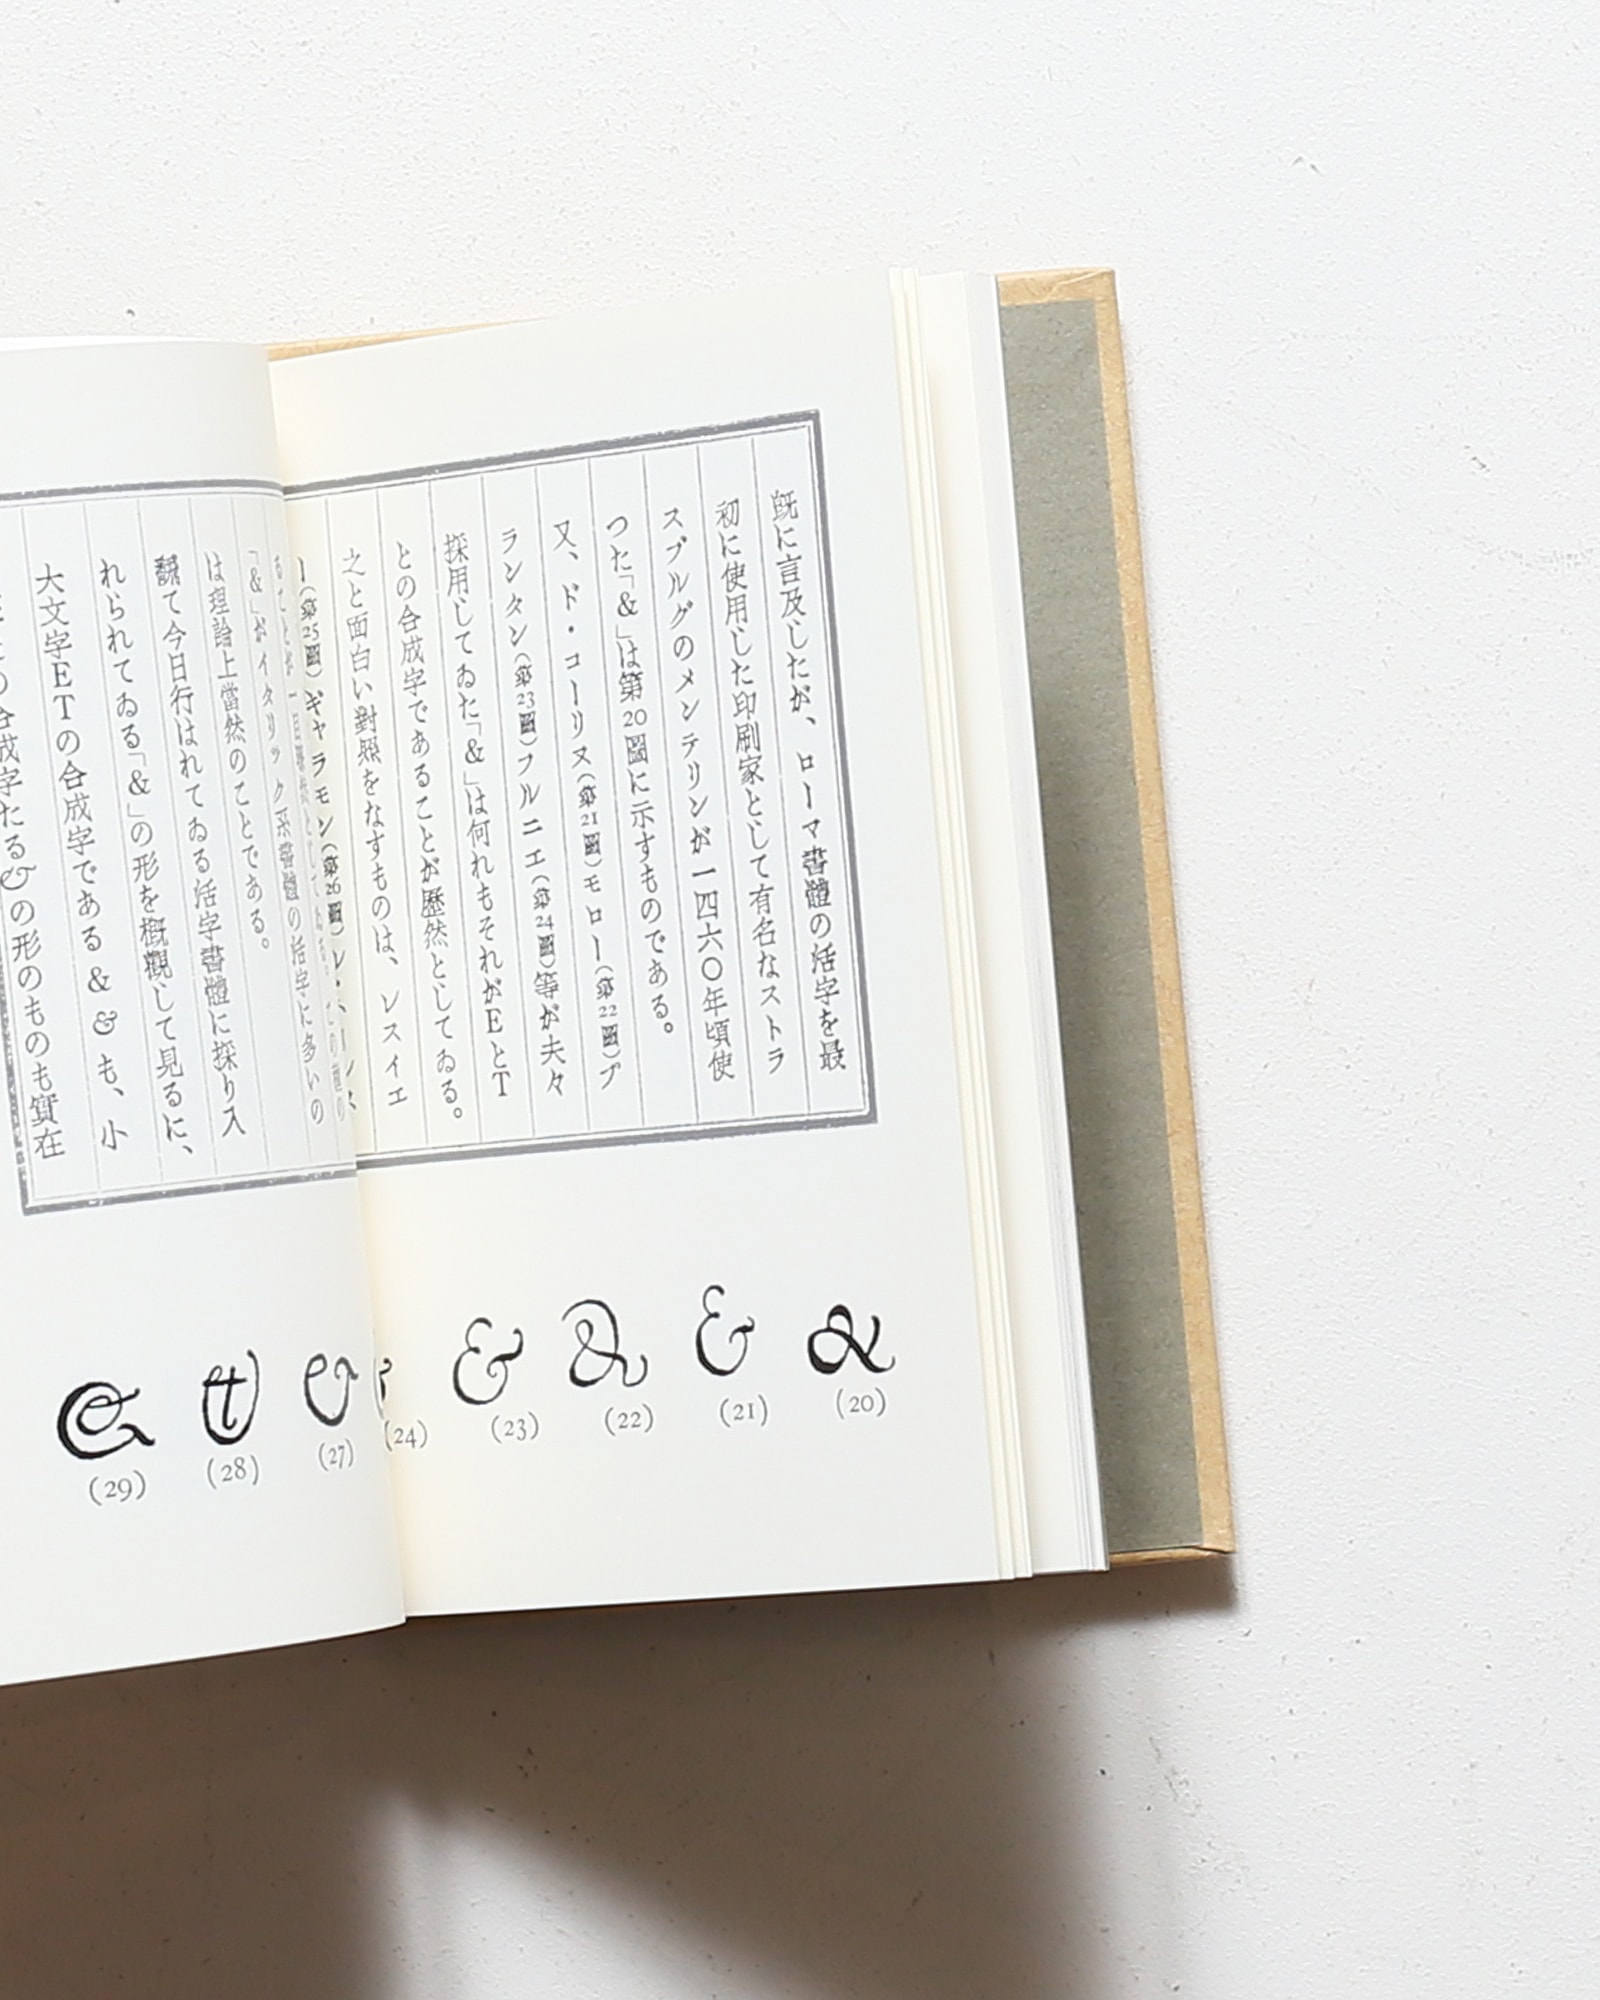 既に言及したが、ローマ書體の活字を最
初に使用した印刷家として有名なストラ
スブルグのメンテリンが一四六〇年頃使
つた「&」は第20圖に示すものである。
又、ド・コーリヌ(第21圖)モロー(第22圖)プ
ランタン(第23圖)フルニエ(第24圖)等が夫々
採用してゐた「&」は何れもそれがEとT
との合成字であることが歷然としてゐる。
之と面白い對照をなすものは、レスイエ
ー(第25圖)ギャラモン(第26圖)
「&」がイタリック系書體の活字に多いの
は理論上當然のことである。
飜て今日行はれてゐる活字書體に採り入
れられてゐる「&」の形を概觀して見るに、
大文字ETの合成字である & & も、小
の合成字たる & の形のものも實在
(20)
(21)
(22)
(23)
(24)
(27)
(28)
(29)